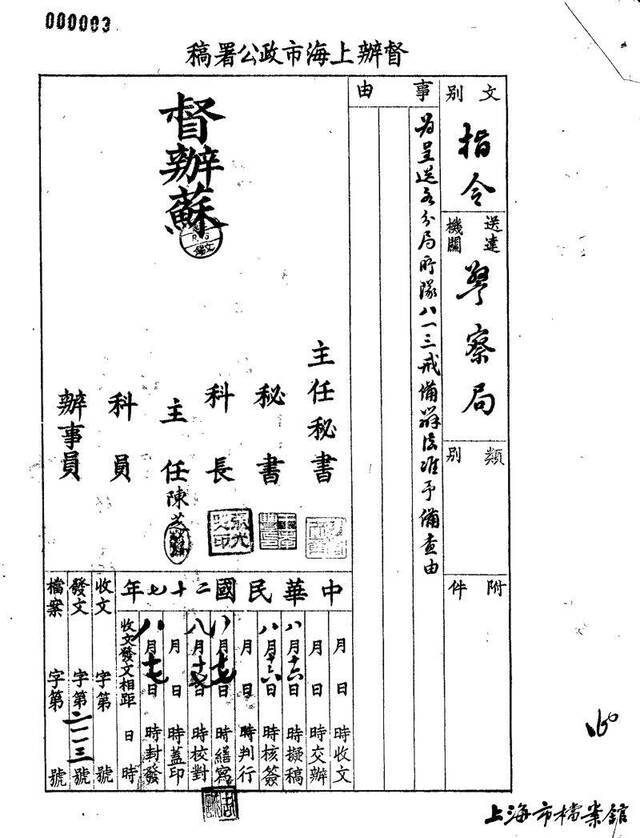 000003
督辦上海市政公署稿
文別
指令
送達機關
警察局
類別
附件
事由
為呈送各分局所隊八一三戒備辦法准予備查由
督辦蘇
主任秘書
秘書
科長
主任陳
科員
辦事員
中華民國二十七年
月 日 時收文
月 日 時交辦
八月十六日 時擬稿
八月十六日 時核簽
月 日 時判行
八月十七日 時繕寫
八月十七日 時校對
月 日 時蓋印
八月十七日 時封發
收文發文相距 日 時
收文 字第 號
發文 字第二一一三號
檔案 字第 號
上海市檔案館